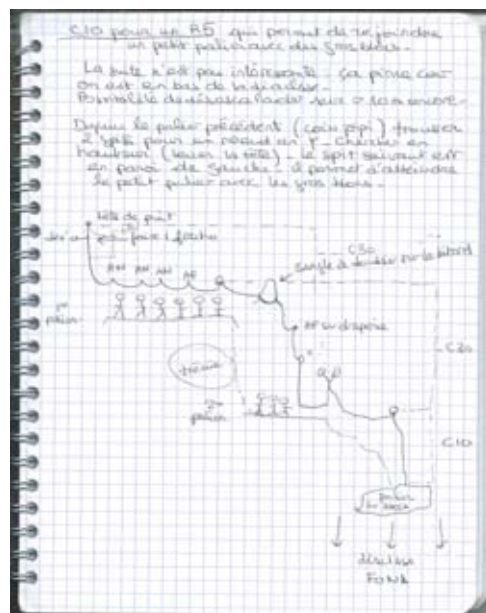 C10 pour un R5 qui permet de rejoindre
un petit palier avec des gros blocs.
La suite n'est pas intéressante. ça pince car
on est en bas de la diaclase.
Possibilité de désescalader sur 10m encore.
Depuis le palier précédent (coin pipi) trouver
2 spits pour un départ en Y. chercher en
hauteur (lever la tête). le spit suivant est
en paroi de gauche. il permet d'atteindre
le petit palier avec les gros blocs.
tête de puit
AN AN AN AF
C30
sangle
1er
palier
AF
trémie
C20
2e
palier
C10
palier
diaclase
FOND